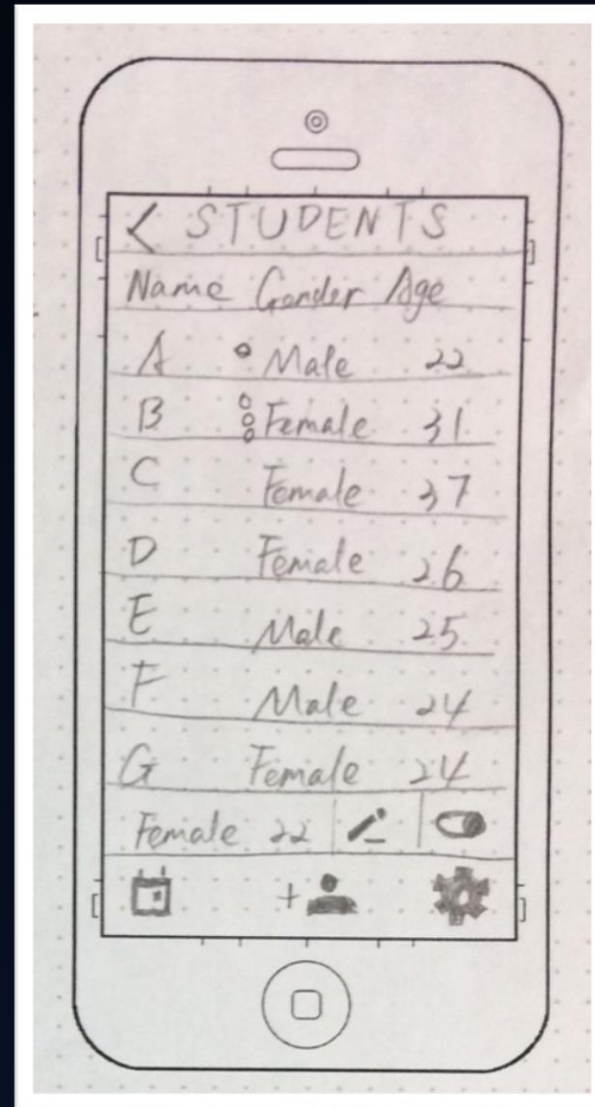 < STUDENTS
Name Gender Age
A Male 22
B Female 31
C Female 37
D Female 26
E Male 25
F Male 24
G Female 24
Female 22
+